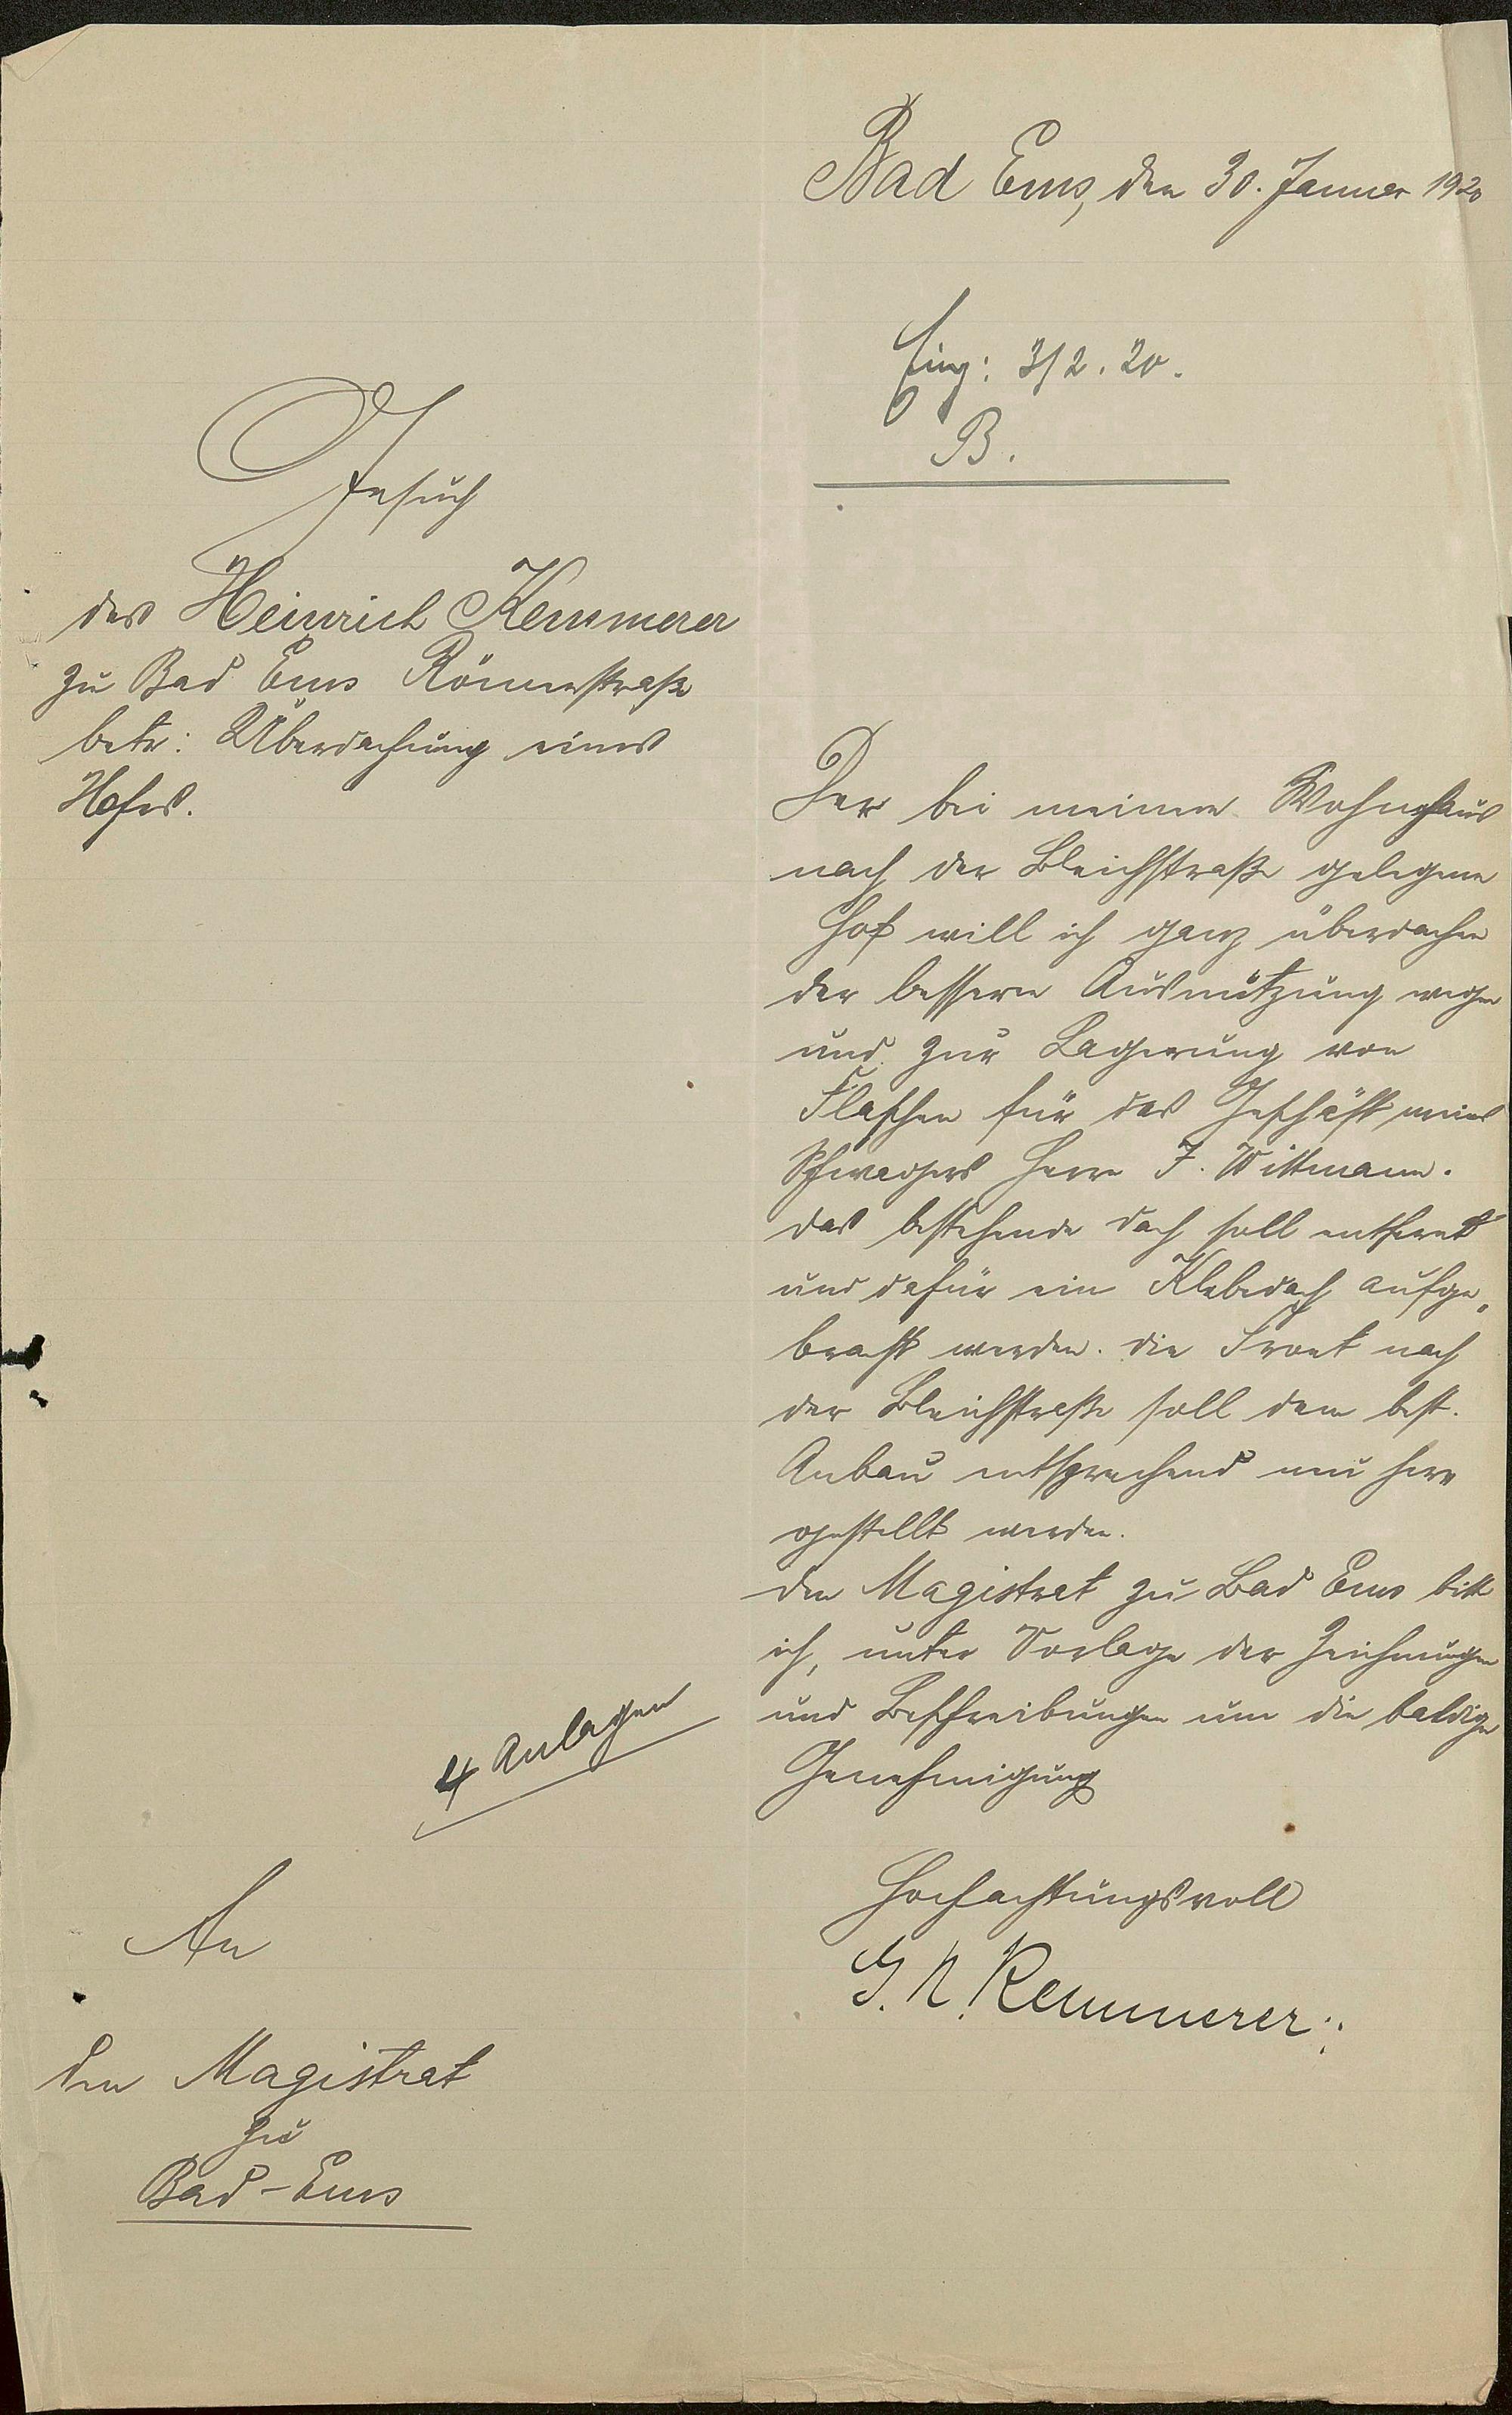 Bad Ems, den 30. Januar 1920
Eing: 3/2. 20.
B.
Gesuch
des Heinrich Kemmerer
zu Bad Ems Römerstraße
betr: Überdachung eines
Hofes.
Der bei meinem Wohnhaus
nach der Bleichstraße gelegene
Hof will ich ganz überdachen
der bessern Ausnützung wegen
und zur Lagerung von
Flaschen für das Geschäft meines
Schwagers Herrn J. Wittmann.
das bestehende Dach soll entfernt
und dafür ein Klebedach aufge„
bracht werden. die Front nach
der Bleichstraße soll dem best.
Anbau entsprechend neu her„
gestellt werden.
den Magistrat zu Bad Ems bitte
ich, unter Vorlage der Zeichnungen
und Beschreibungen um die baldige
Genehmigung
4 Anlagen
Hochachtungsvoll
G. H. Kemmerer
An
den Magistrat
zu
Bad-Ems